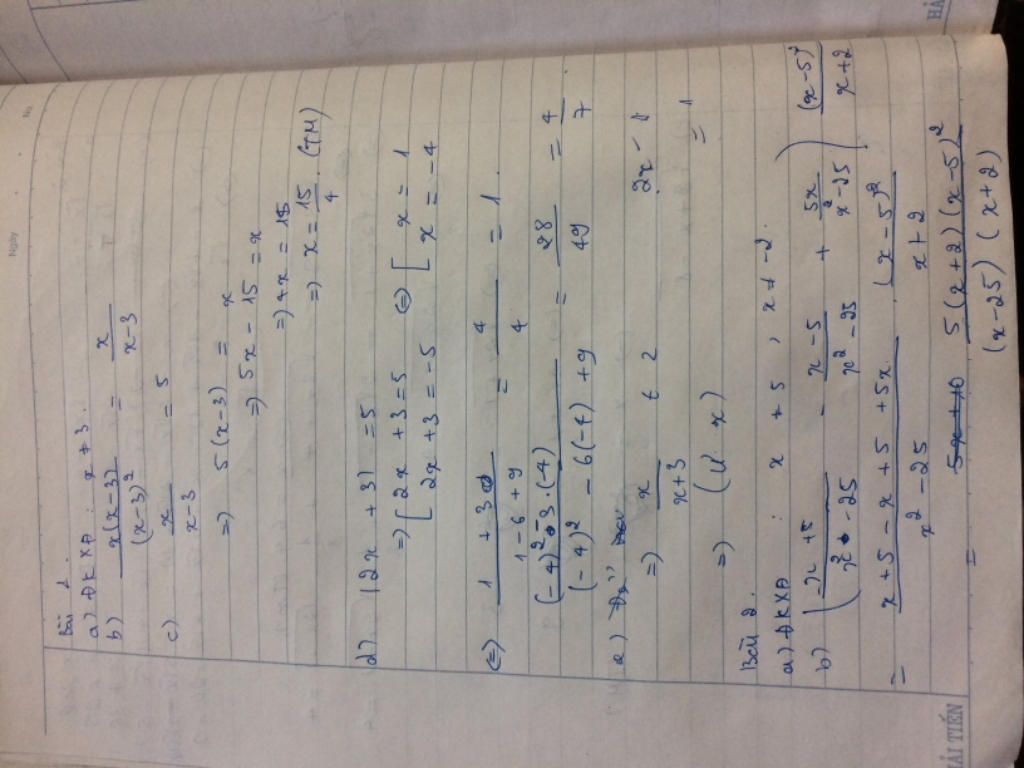 No.
Ngày
Bài 1.
a) ĐKXĐ : x ≠ 3.
b) x(x-3)/(x-3)² = x/x-3
c) x/x-3 = 5
=) 5(x-3) = x
=) 5x - 15 = x
=) 4x = 15
=) x = 15/4 (TM)
d) |2x + 3| = 5
=) [ 2x + 3 = 5 (=) [ x = 1
2x + 3 = -5 x = -4
(=) 1 + 3/1 - 6 + 9 = 4/4 = 1.
(-4)² - 3.(-4)/(-4)² - 6(-4) + 9 = 28/49 = 4/7
=) x/x+3
Bài 2.
a) ĐKXĐ : x ≠ 5, x ≠ -2
b) (x + 5/x² - 25 - x - 5/x² - 25 + 5x/x² - 25) (x-5)²/x+2
= x + 5 - x + 5 + 5x/x² - 25 . (x - 5)²/x + 2
= 5(x+2)(x-5)²/(x-25)(x+2)
HẢI TIẾN